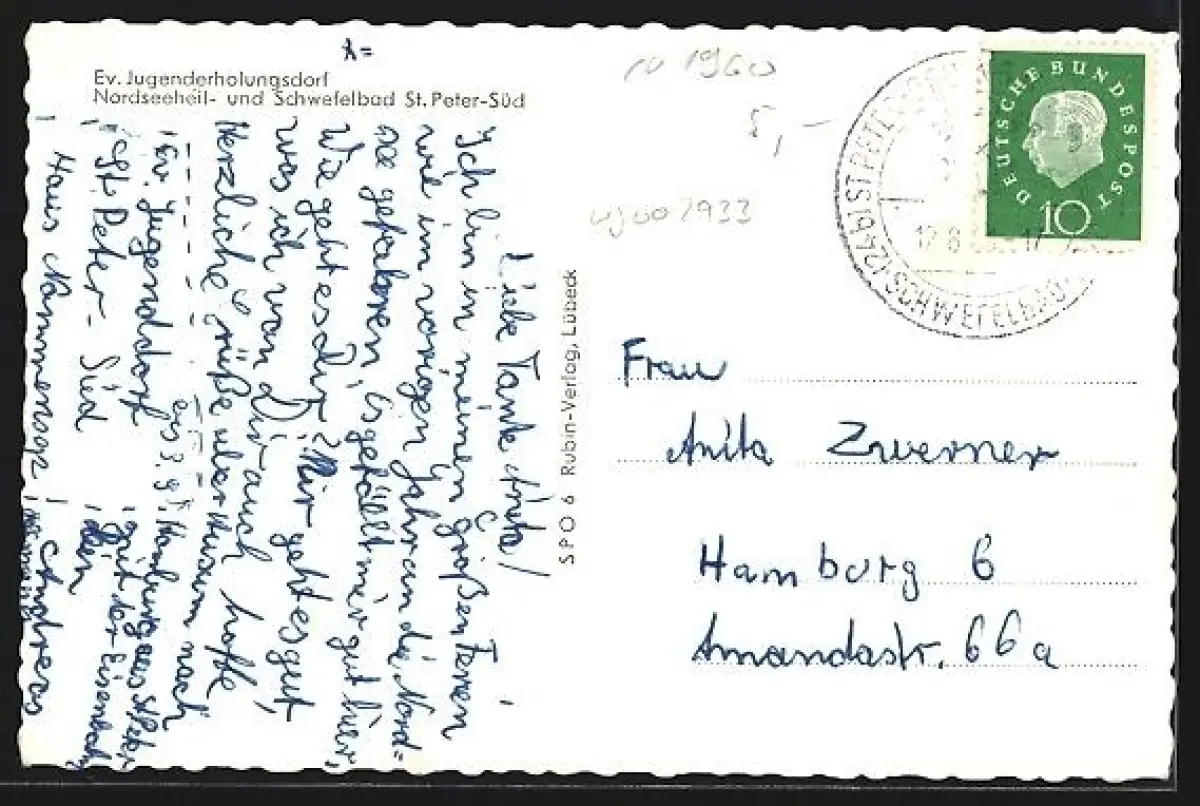 Ev. Jugenderholungsdorf
Nordseeheil- und Schwefelbad St. Peter-Süd
1960
5,-
DEUTSCHE BUNDESPOST
10
SCHWEFELBAD
SPO 6 Rubin-Verlag, Lübeck
Frau
Anita Zwerner
Hamburg 6
Amandastr. 66a
Liebe Tante Anita!
Ich bin in meinen großen Ferien
wie im vorigen Jahr an die Nord=
see gefahren. Es gefällt mir gut hier,
Wie geht es dir? Mir geht es gut
was ich von Dir auch hoffe,
Herzliche Grüße über Husum nach
Ev. Jugenddorf
St. Peter-Süd
Haus Nommensoge! Andreas
Hamburg aus St. Peter
mit der Eisenbahn